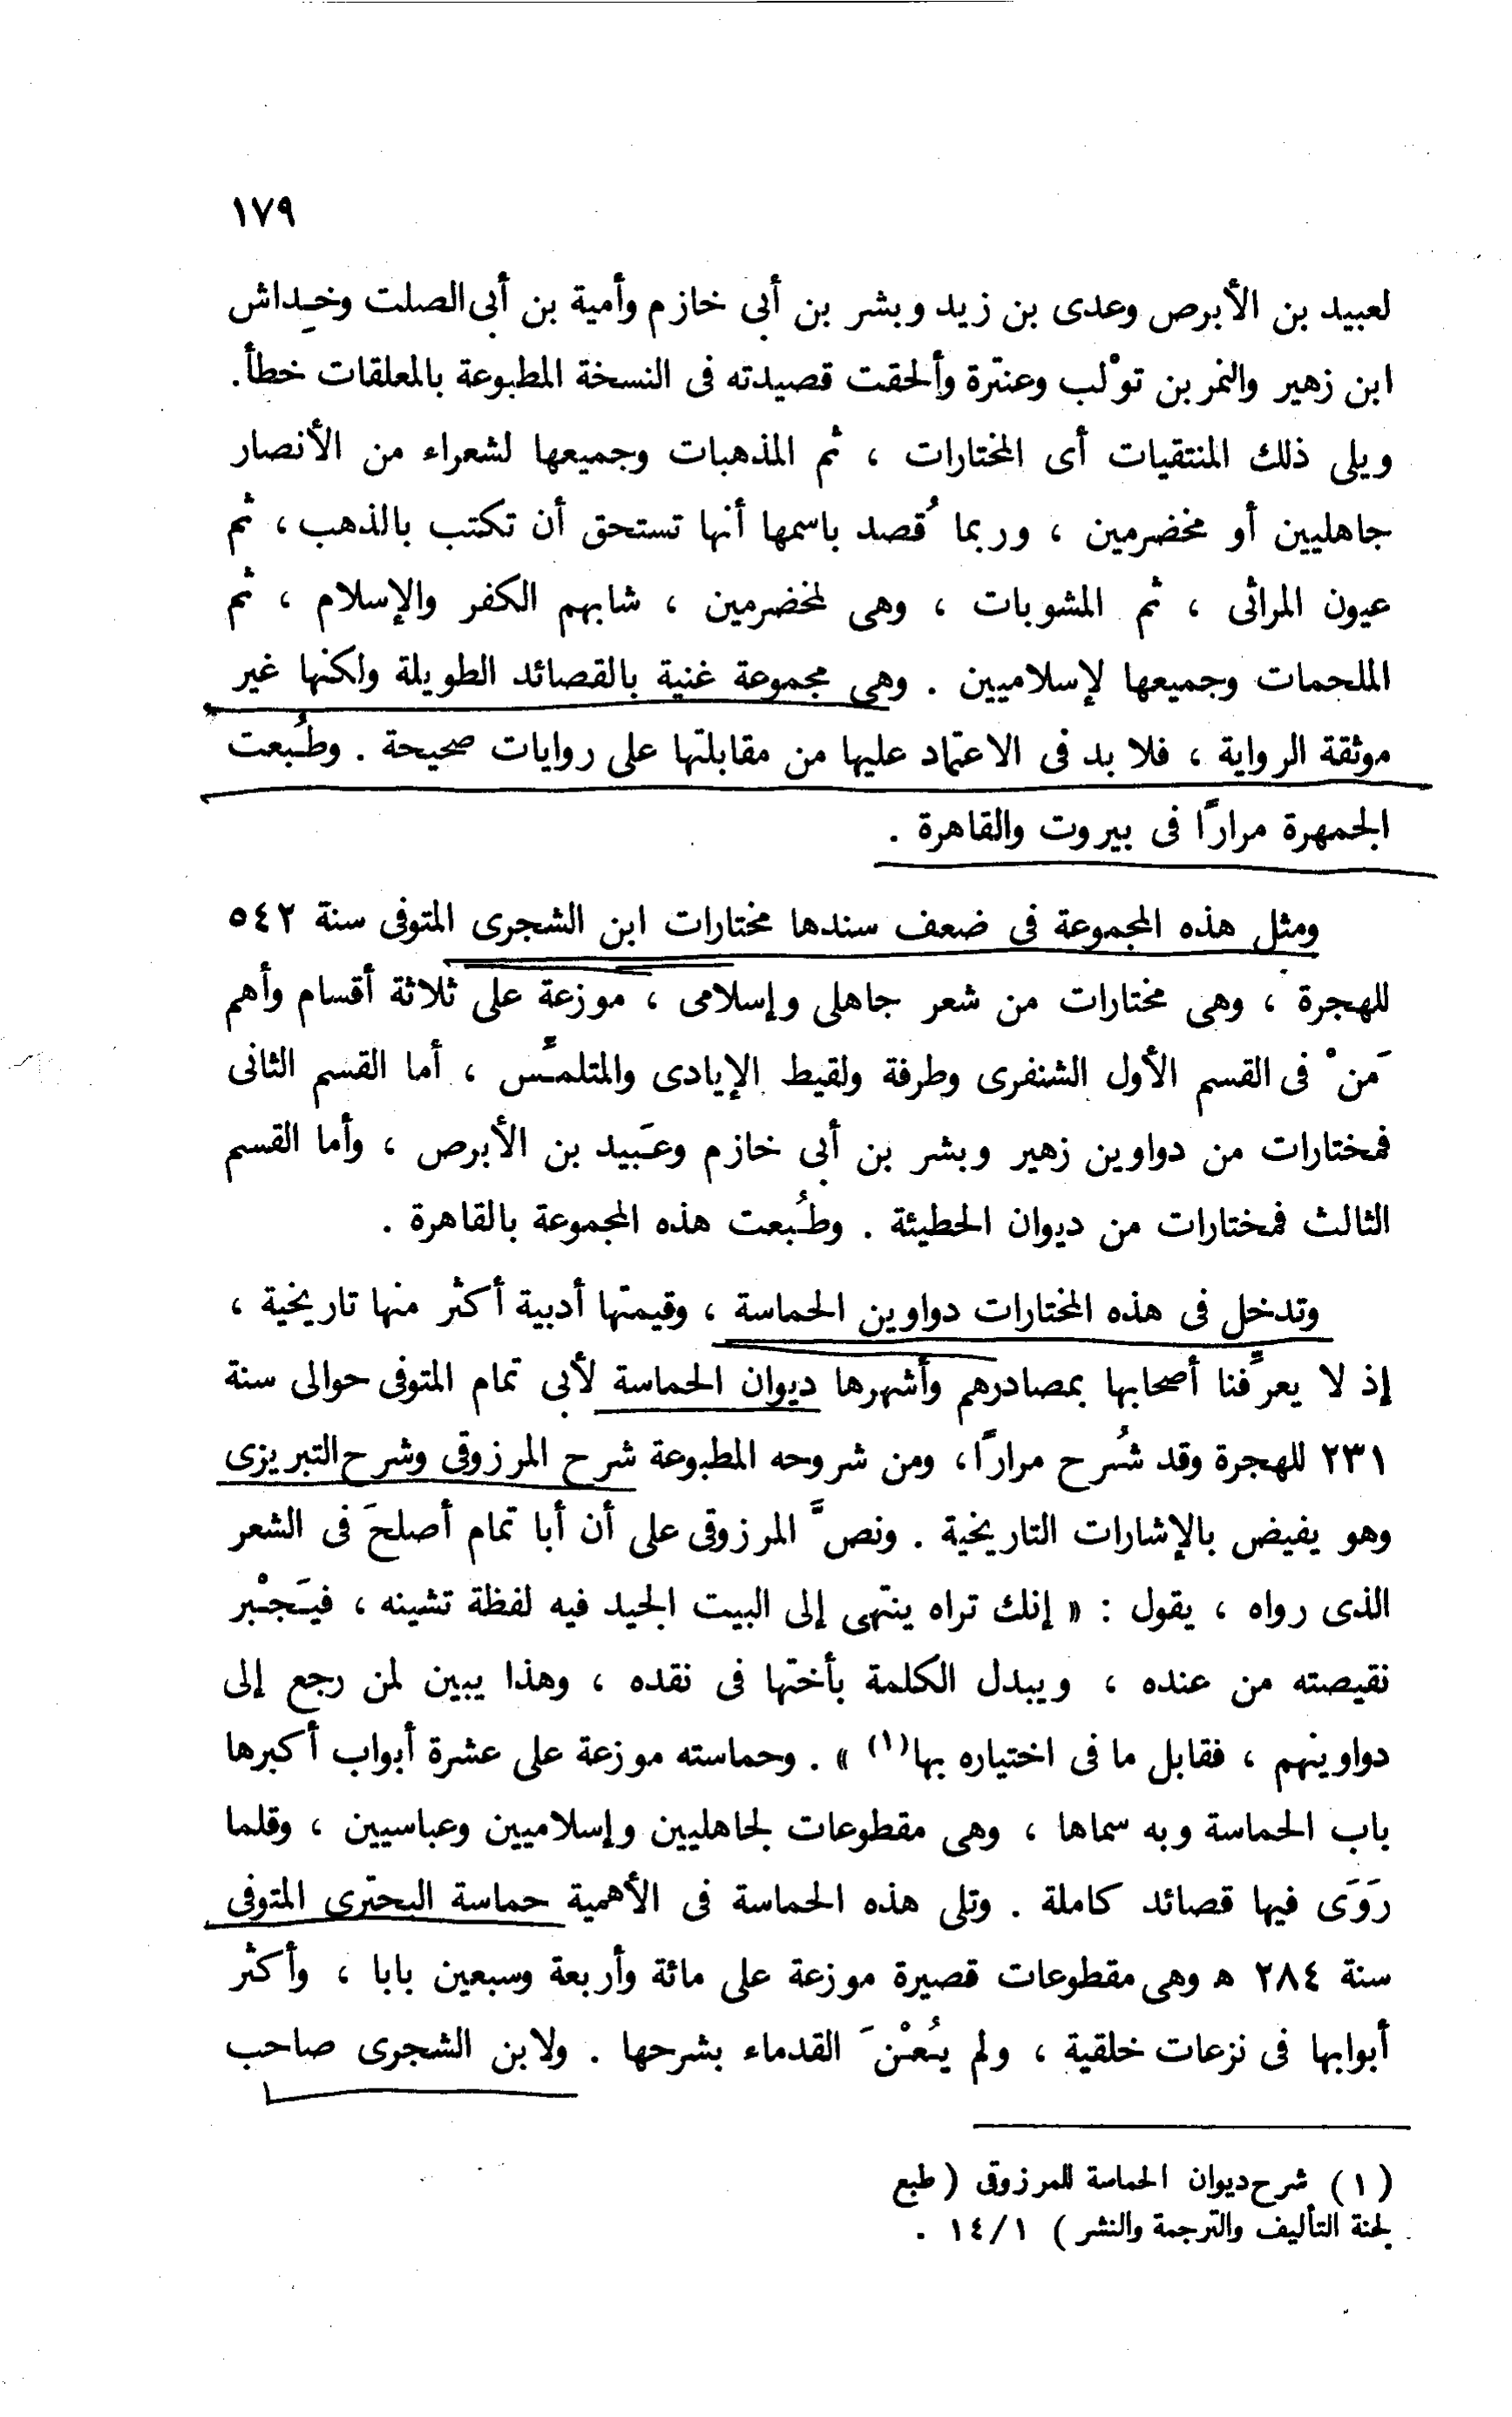 ١٧٩
لعبيد بن الأبرص وعدى بن زيد وبشر بن أبى خازم وأمية بن أبى الصلت وخِداش
ابن زهير والنمر بن توْلب وعنترة وألحقت قصيدته فى النسخة المطبوعة بالمعلقات خطأ.
ويلى ذلك المنتقيات أى المختارات ، ثم المذهبات وجميعها لشعراء من الأنصار
جاهليين أو مخضرمين ، وربما قُصد باسمها أنها تستحق أن تكتب بالذهب ، ثم
عيون المراثى ، ثم المشوبات ، وهى لمخضرمين ، شابهم الكفر والإسلام ، ثم
الملحمات وجميعها لإسلاميين . وهى مجموعة غنية بالقصائد الطويلة ولكنها غير
موثقة الرواية ، فلا بد فى الاعتماد عليها من مقابلتها على روايات صحيحة . وطُبعت
الجمهرة مراراً فى بيروت والقاهرة .
ومثل هذه المجموعة فى ضعف سندها مختارات ابن الشجرى المتوفى سنة ٥٤٢
للهجرة ، وهى مختارات من شعر جاهلى وإسلامى ، موزعة على ثلاثة أقسام وأهم
مَنْ فى القسم الأول الشنفرى وطرفة ولقيط الإيادى والمتلمِّس ، أما القسم الثانى
فمختارات من دواوين زهير وبشر بن أبى خازم وعَبيد بن الأبرص ، وأما القسم
الثالث فمختارات من ديوان الحطيئة . وطُبعت هذه المجموعة بالقاهرة .
وتدخل فى هذه المختارات دواوين الحماسة ، وقيمتها أدبية أكثر منها تاريخية ،
إذ لا يعرِّفنا أصحابها بمصادرهم وأشهرها ديوان الحماسة لأبى تمام المتوفى حوالى سنة
٢٣١ للهجرة وقد شُرح مراراً ، ومن شروحه المطبوعة شرح المرزوقى وشرح التبريزى
وهو يفيض بالإشارات التاريخية . ونصَّ المرزوقى على أن أبا تمام أصلحَ فى الشعر
الذى رواه ، يقول : « إنك تراه ينتهى إلى البيت الجيد فيه لفظة تشينه ، فيَجْبر
نقيصته من عنده ، ويبدل الكلمة بأختها فى نقده ، وهذا يبين لمن رجع إلى
دواوينهم ، فقابل ما فى اختياره بها(١) » . وحماسته موزعة على عشرة أبواب أكبرها
باب الحماسة وبه سماها ، وهى مقطوعات لجاهليين وإسلاميين وعباسيين ، وقلما
رَوَى فيها قصائد كاملة . وتلى هذه الحماسة فى الأهمية حماسة البحترى المتوفى
سنة ٢٨٤ ه وهى مقطوعات قصيرة موزعة على مائة وأربعة وسبعين بابا ، وأكثر
أبوابها فى نزعات خلقية ، ولم يُعْنَ القدماء بشرحها . ولابن الشجرى صاحب
(١) شرح ديوان الحماسة للمرزوقى ( طبع
لجنة التأليف والترجمة والنشر ) ١٤/١ .